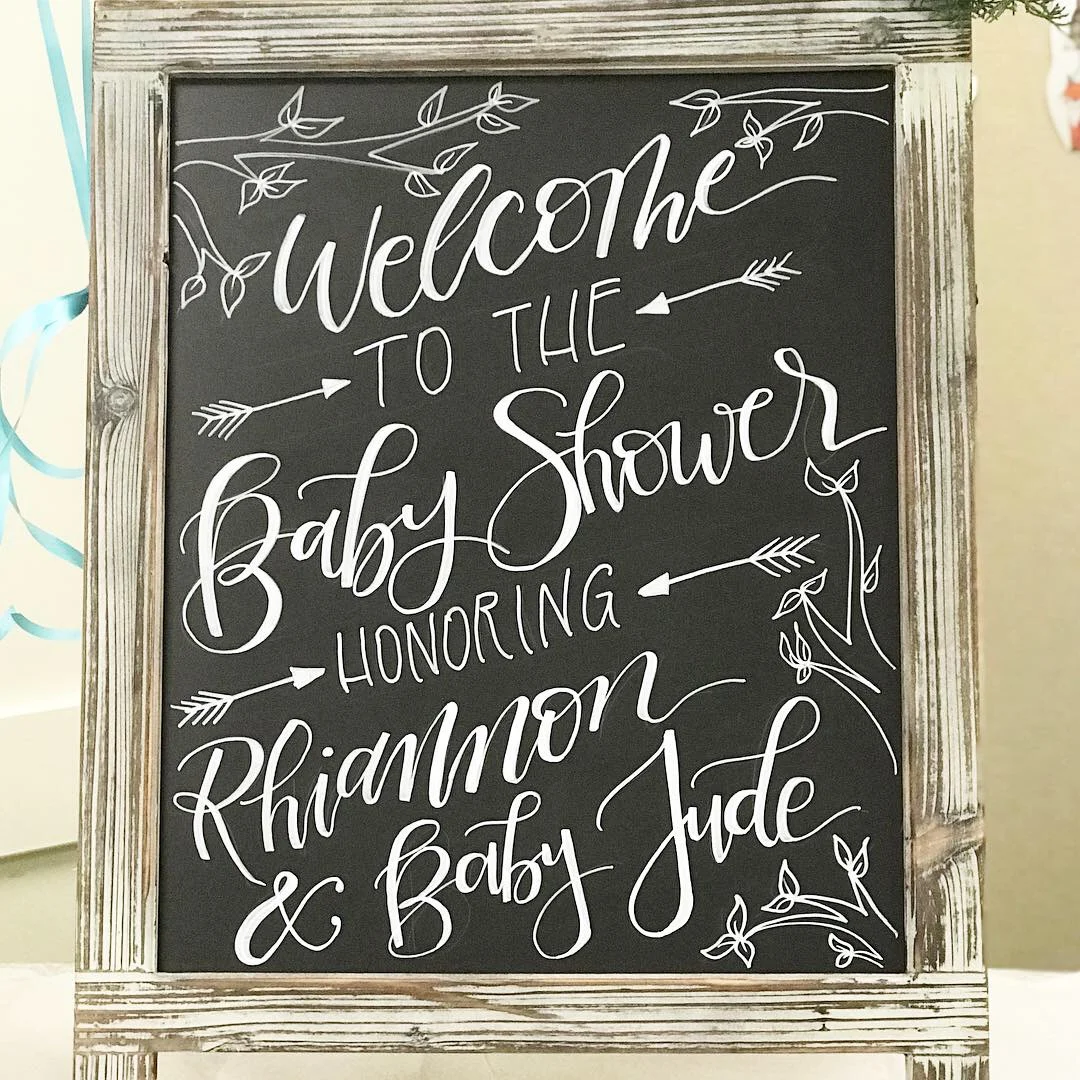 Welcome
TO THE
Baby Shower
HONORING
Rhiannon
& Baby Jude